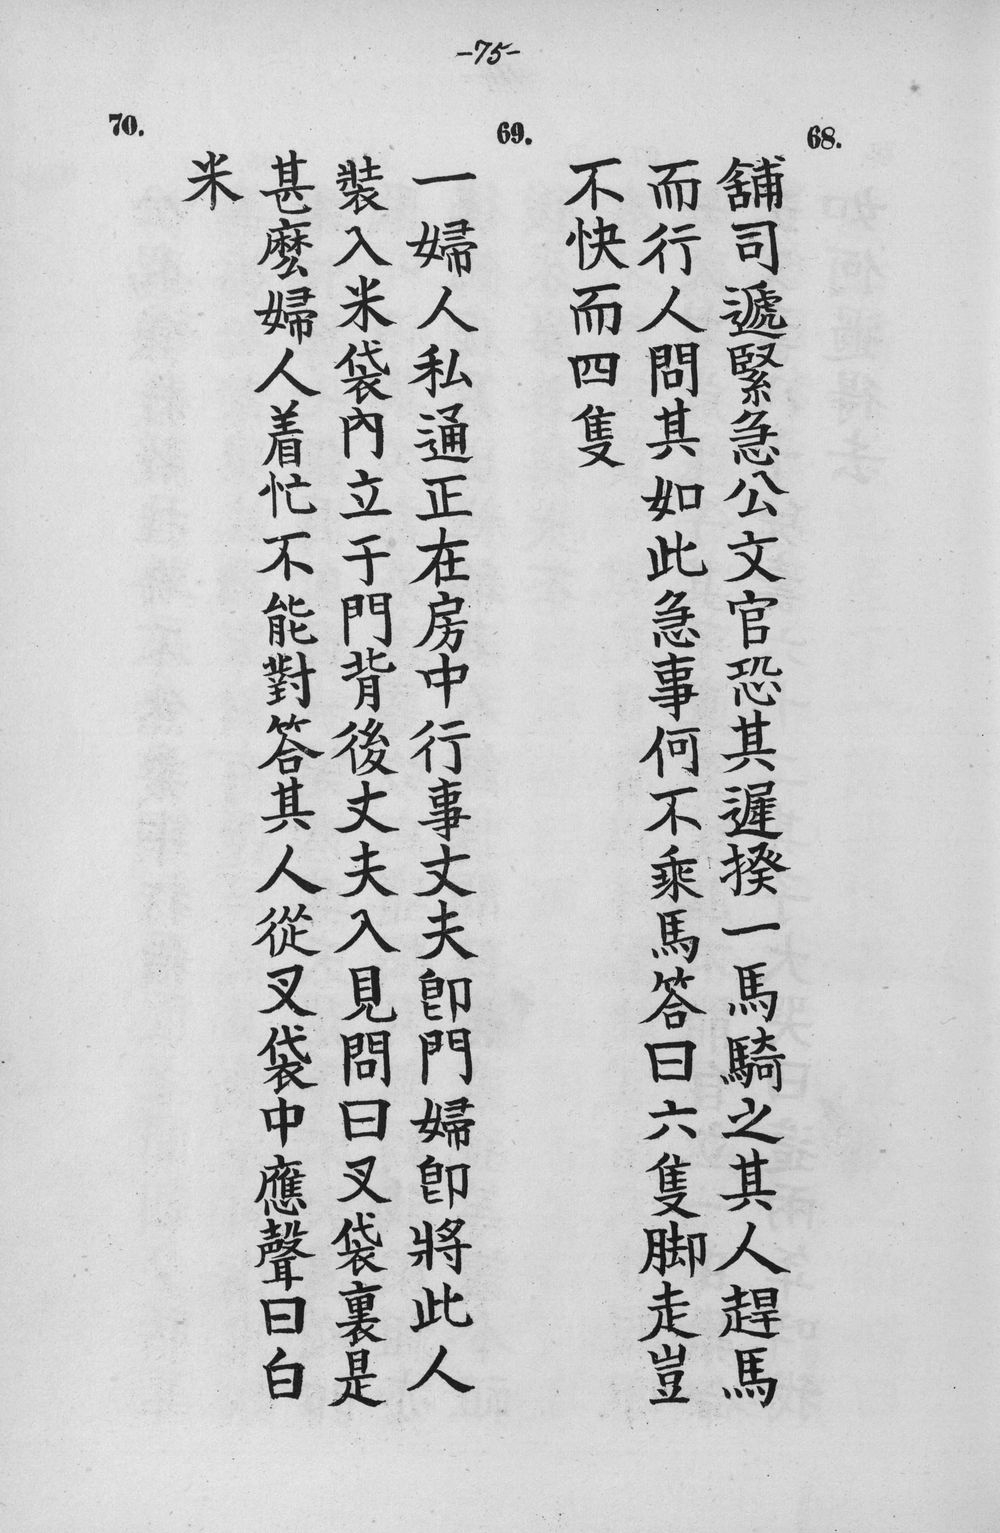 -75-
68.
舖司遞緊急公文官恐其遲揆一馬騎之其人趕馬
而行人問其如此急事何不乘馬答曰六隻脚走豈
不快而四隻
69.
一婦人私通正在房中行事丈夫卽門婦卽將此人
裝入米袋內立于門背後丈夫入見問曰叉袋裏是
甚麽婦人着忙不能對答其人從叉袋中應聲曰白
米
70.